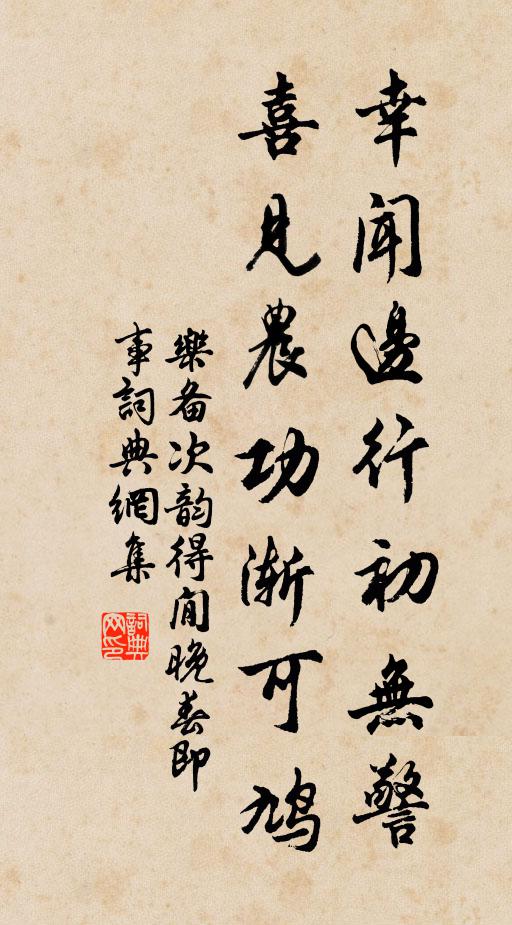 幸聞邊行初無警
喜見農功漸可鳩
樂备次韵得閒晚春即
事詞典網集
詞典网印